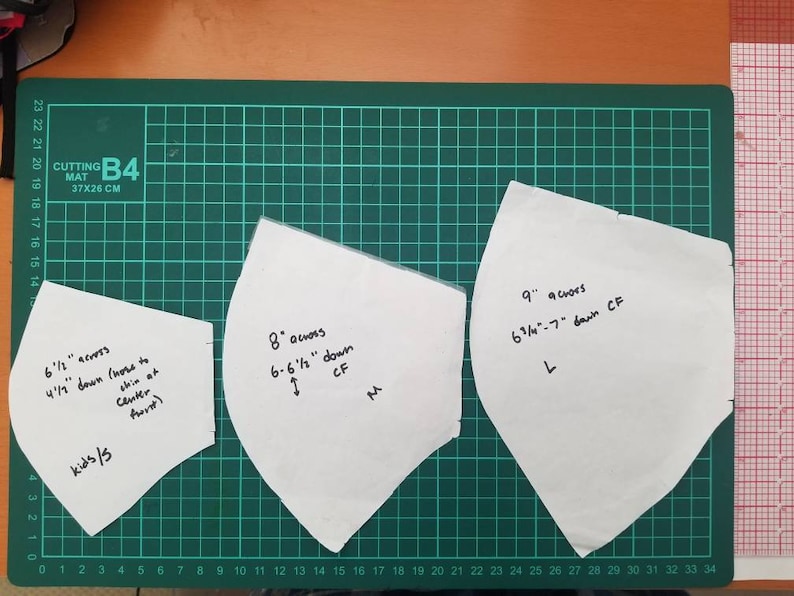 CUTTING
MAT
B4
37X26 CM
23
22
21
20
19
18
17
16
15
14
13
4
3
2
1
0
0 1 2 3 4 5 6 7 8 9 10 11 12 13 14 15 16 17 18 19 20 21 22 23 24 25 26 27 28 29 30 31 32 33 34
6 1/2" across
4 1/2" down (nose to
chin at
center
front)
kids/S
8" across
6-6 1/2" down
CF
M
9" across
6 3/4"-7" down CF
L